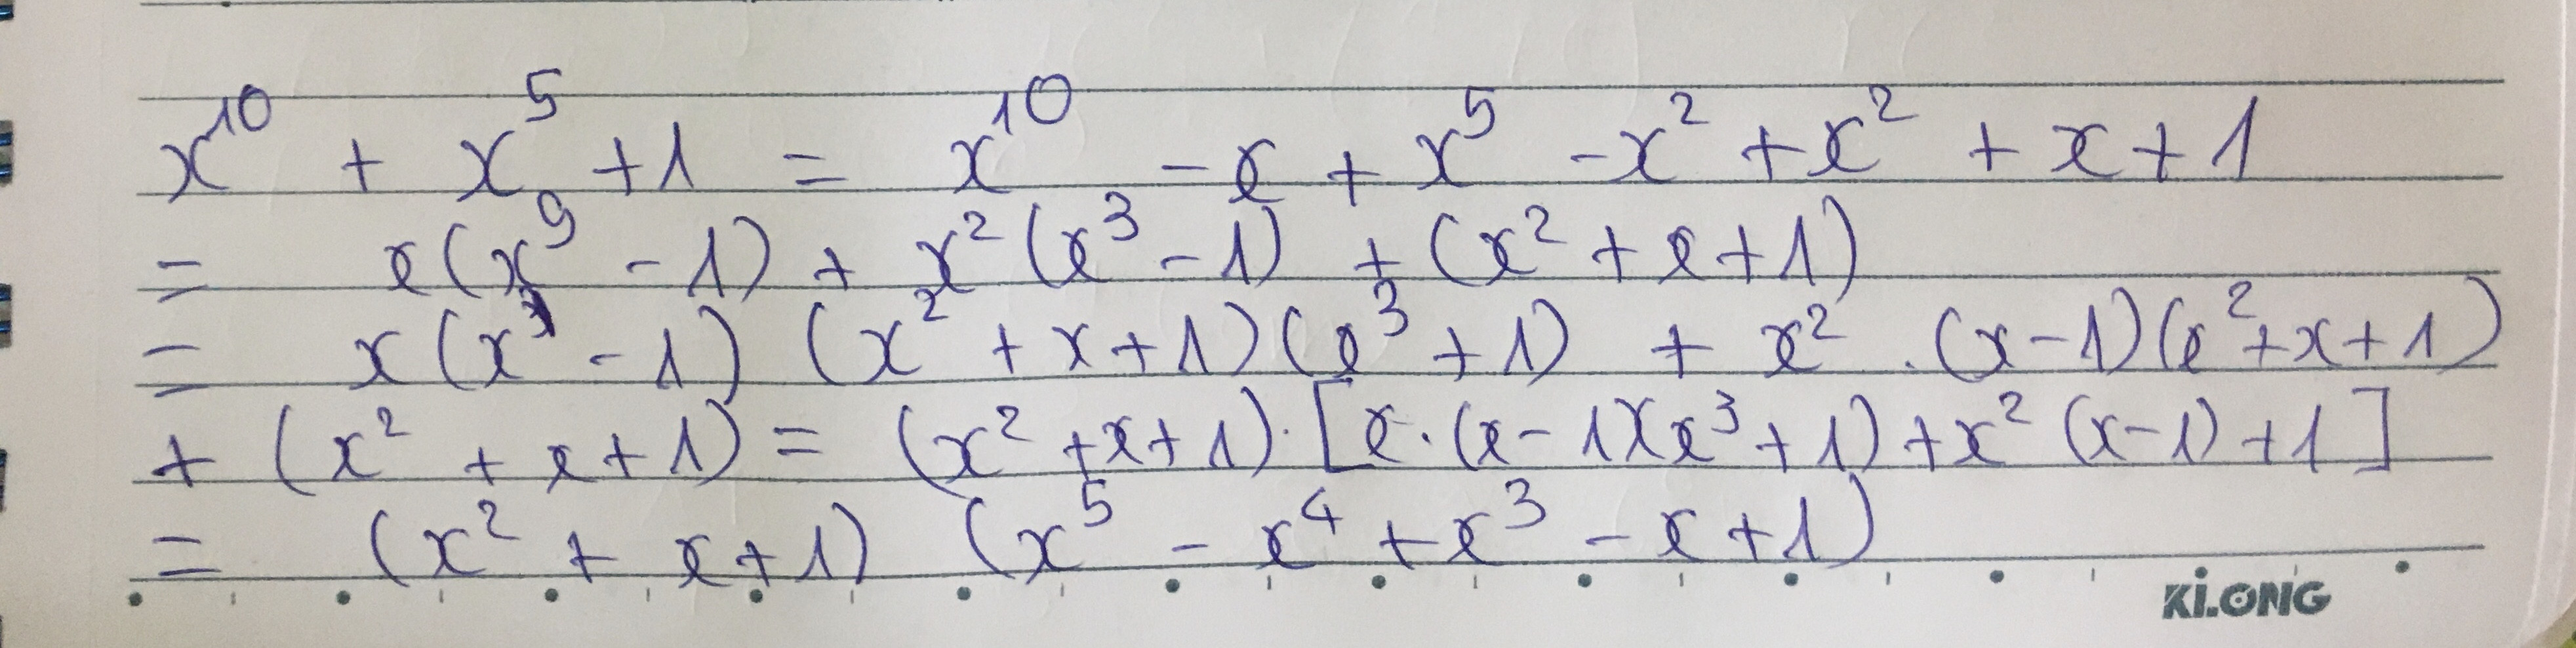 x¹⁰ + x⁵ + 1 = x¹⁰ - x + x⁵ - x² + x² + x + 1
= x(x⁹ - 1) + x²(x³ - 1) + (x² + x + 1)
= x(x³ - 1) (x² + x + 1)(x³ + 1) + x² . (x - 1)(x² + x + 1)
+ (x² + x + 1) = (x² + x + 1) . [x . (x - 1)(x³ + 1) + x² (x - 1) + 1]
= (x² + x + 1) (x⁵ - x⁴ + x³ - x + 1)
KiLONG